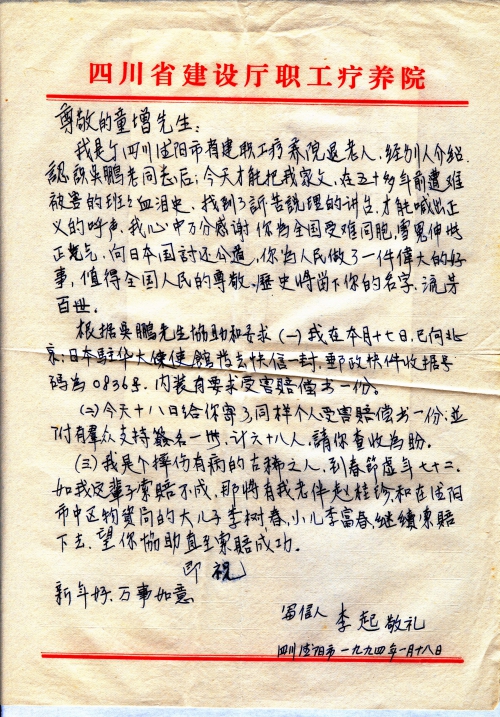 四川省建设厅职工疗养院
尊敬的童增先生：
我是个四川德阳市省建职工疗养院退老人、经别人介绍
認識吳鵬老同志后；今天才能把我家父，在五十多年前遭难
被害的班班血泪史，找到了訴告說理的讲台，才能喊出正
义的呼声。我心中万分感谢你為全国受难同胞，雪冤伸特
正気，向日本国討还公道，你為人民做了一件偉大的好
事，值得全国人民的尊敬。歷史將留下你的名字，流芳
百世。
根据吳鵬先生協助和要求（一）我在本月十七日，已向北
京；日本駐华大使館发去快信一封，郵政快件收据号
码为0836号。内装有要求受害賠偿书一份。
（二）今天十八日给你寄了同样个人受害賠偿书一份；並
附有羣众支持簽名一册，计六十八人，請你查收為盼。
（三）我是个摔伤有病的古稀之人，到春節虚年七十二，
如我这辈子索賠不成，那將有我老伴赵桂珍和在德阳
市中区物資局的大儿子李树春，小儿李富春，继續索賠
下去，望你協助直至索賠成功。
即祝
新年好，万事如意
写信人 李起 敬礼
四川德阳市一九九四年一月十八日